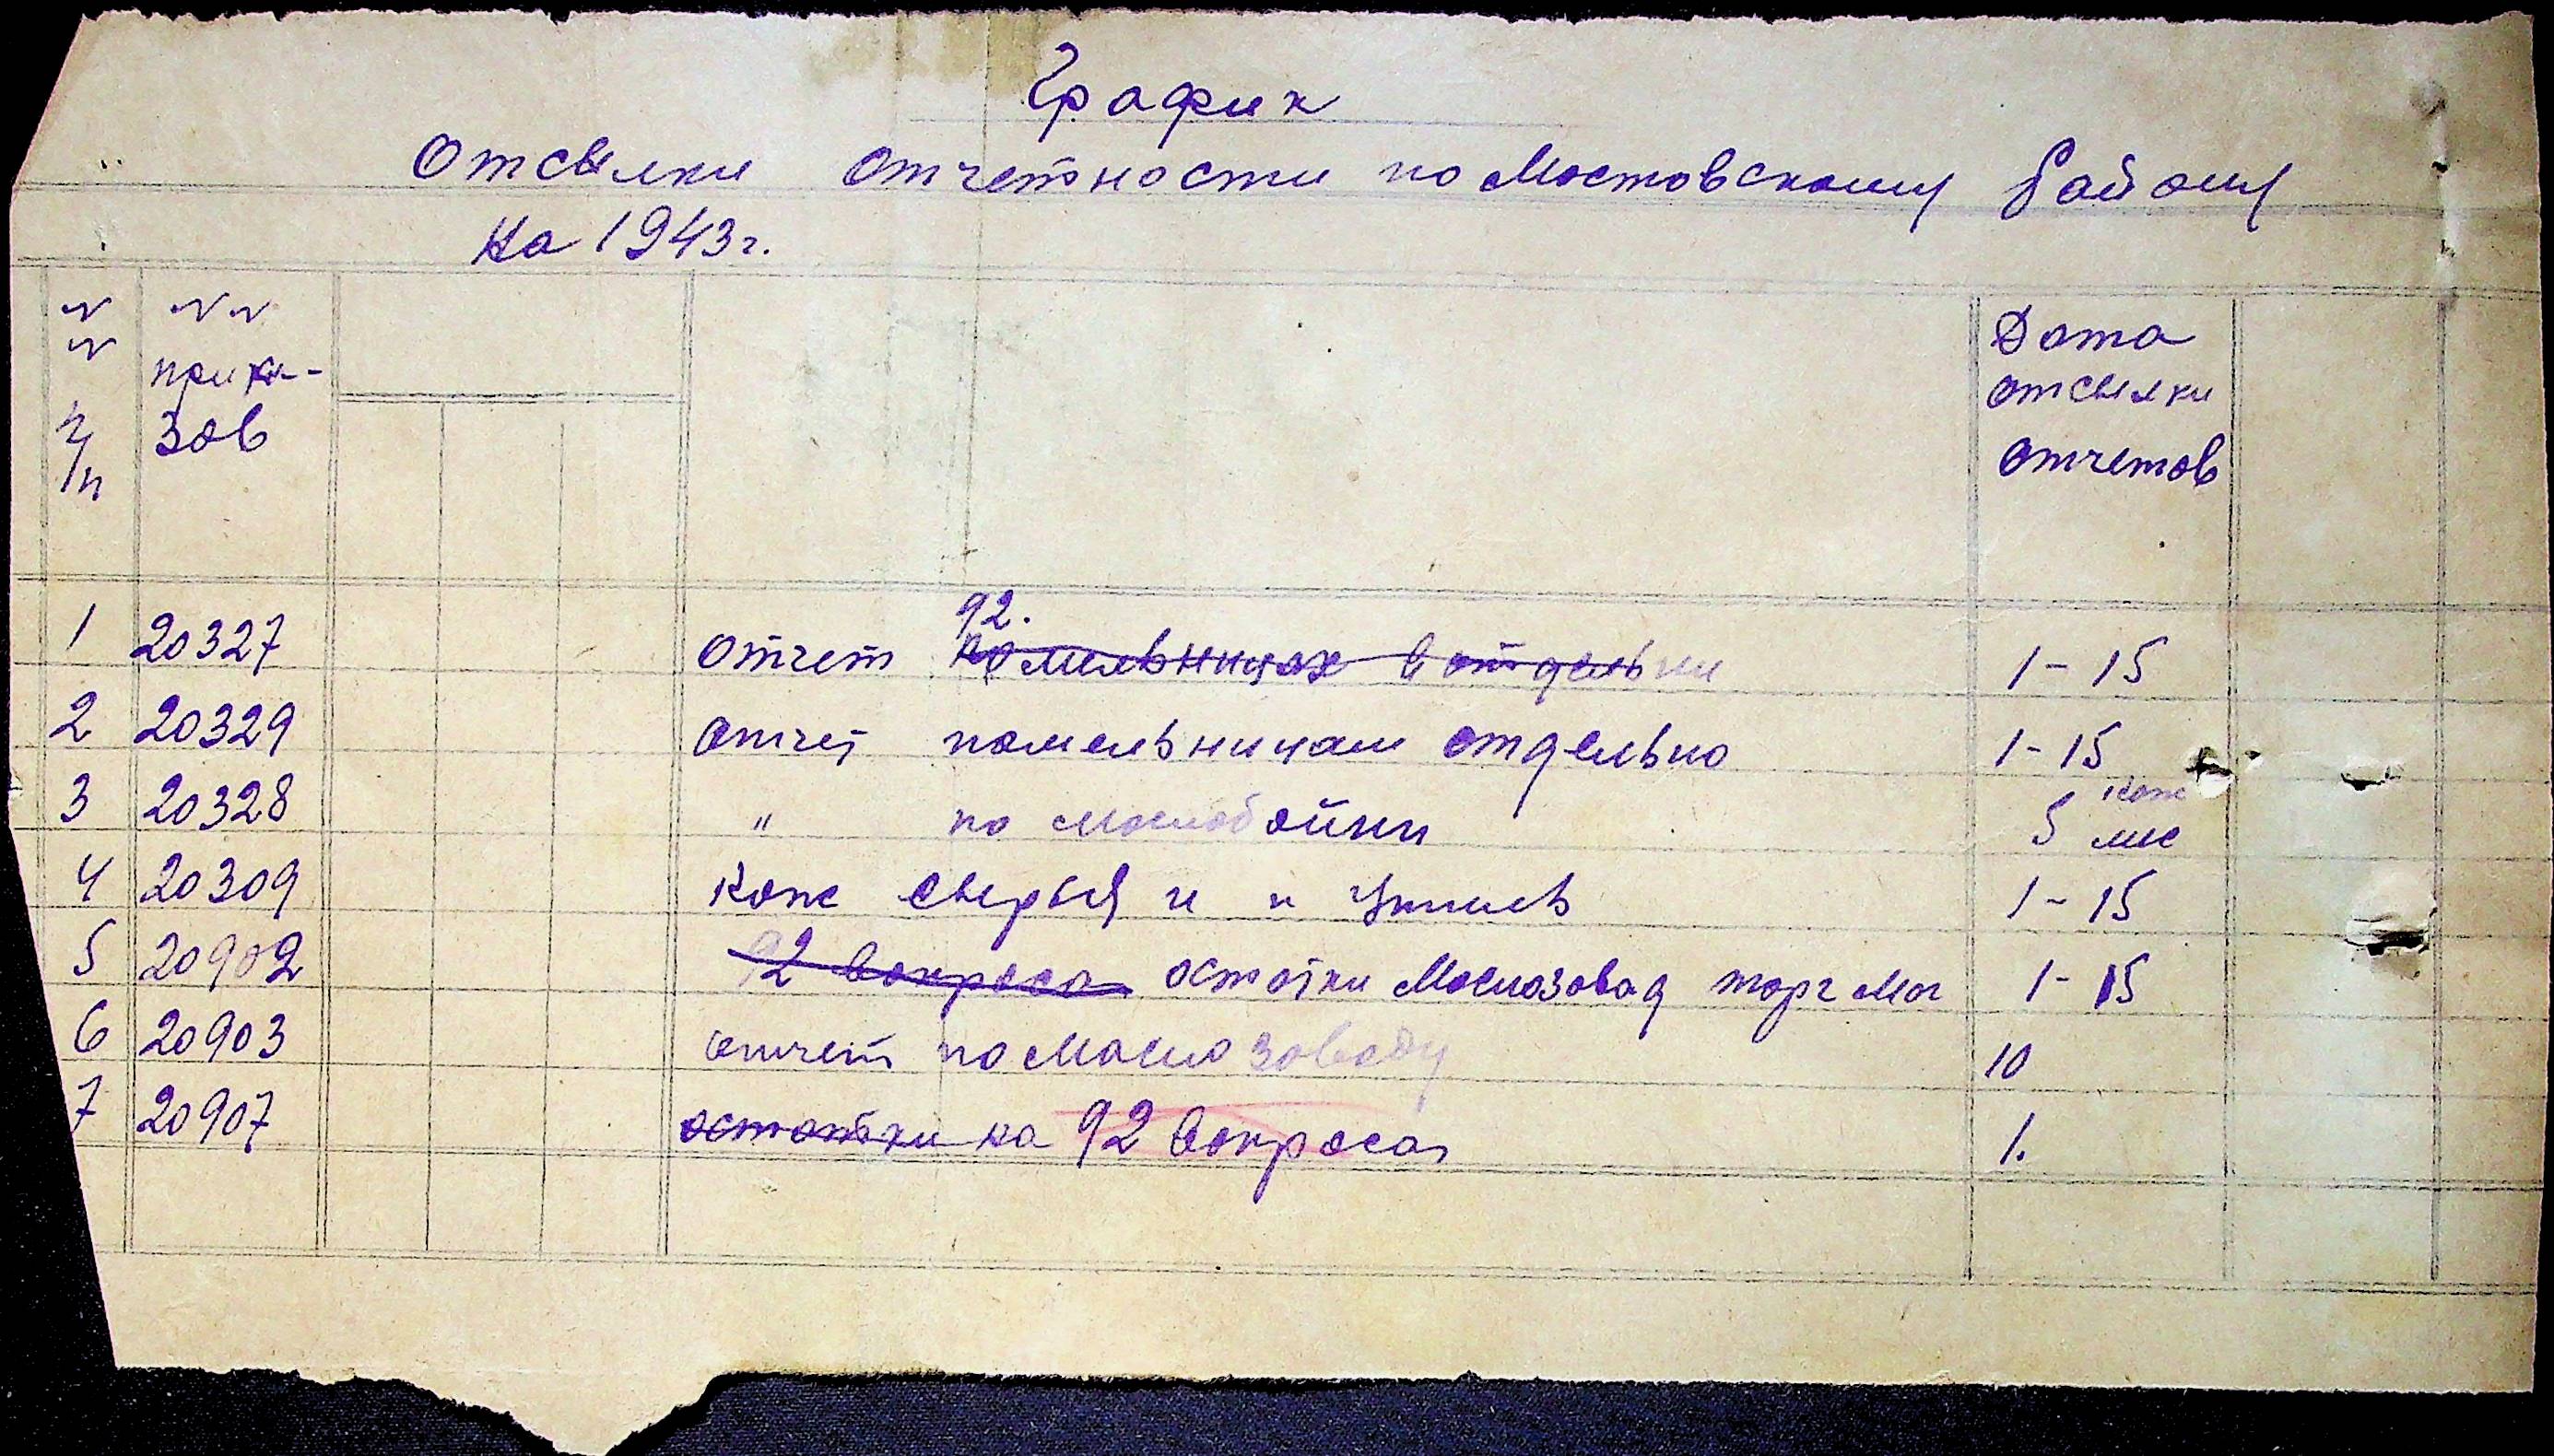 График
Отсылки отчетности по Мостовскому Району
на 1943 г.
№№ п/п №№ приказов Дата отсылки отчетов
1 20327 отчет 92. по мельницах в отдельни 1-15
2 20329 отчет по мельницам отдельно 1-15
3 20328 " по маслобойки 5 мес
4 20309 Кож сырья и 1-15
5 20902 92 вопроса остатки Маслозавод торг Маг 1-15
6 20903 отчет по Масло заводу 10
7 20907 остатки на 92 вопроса 1.